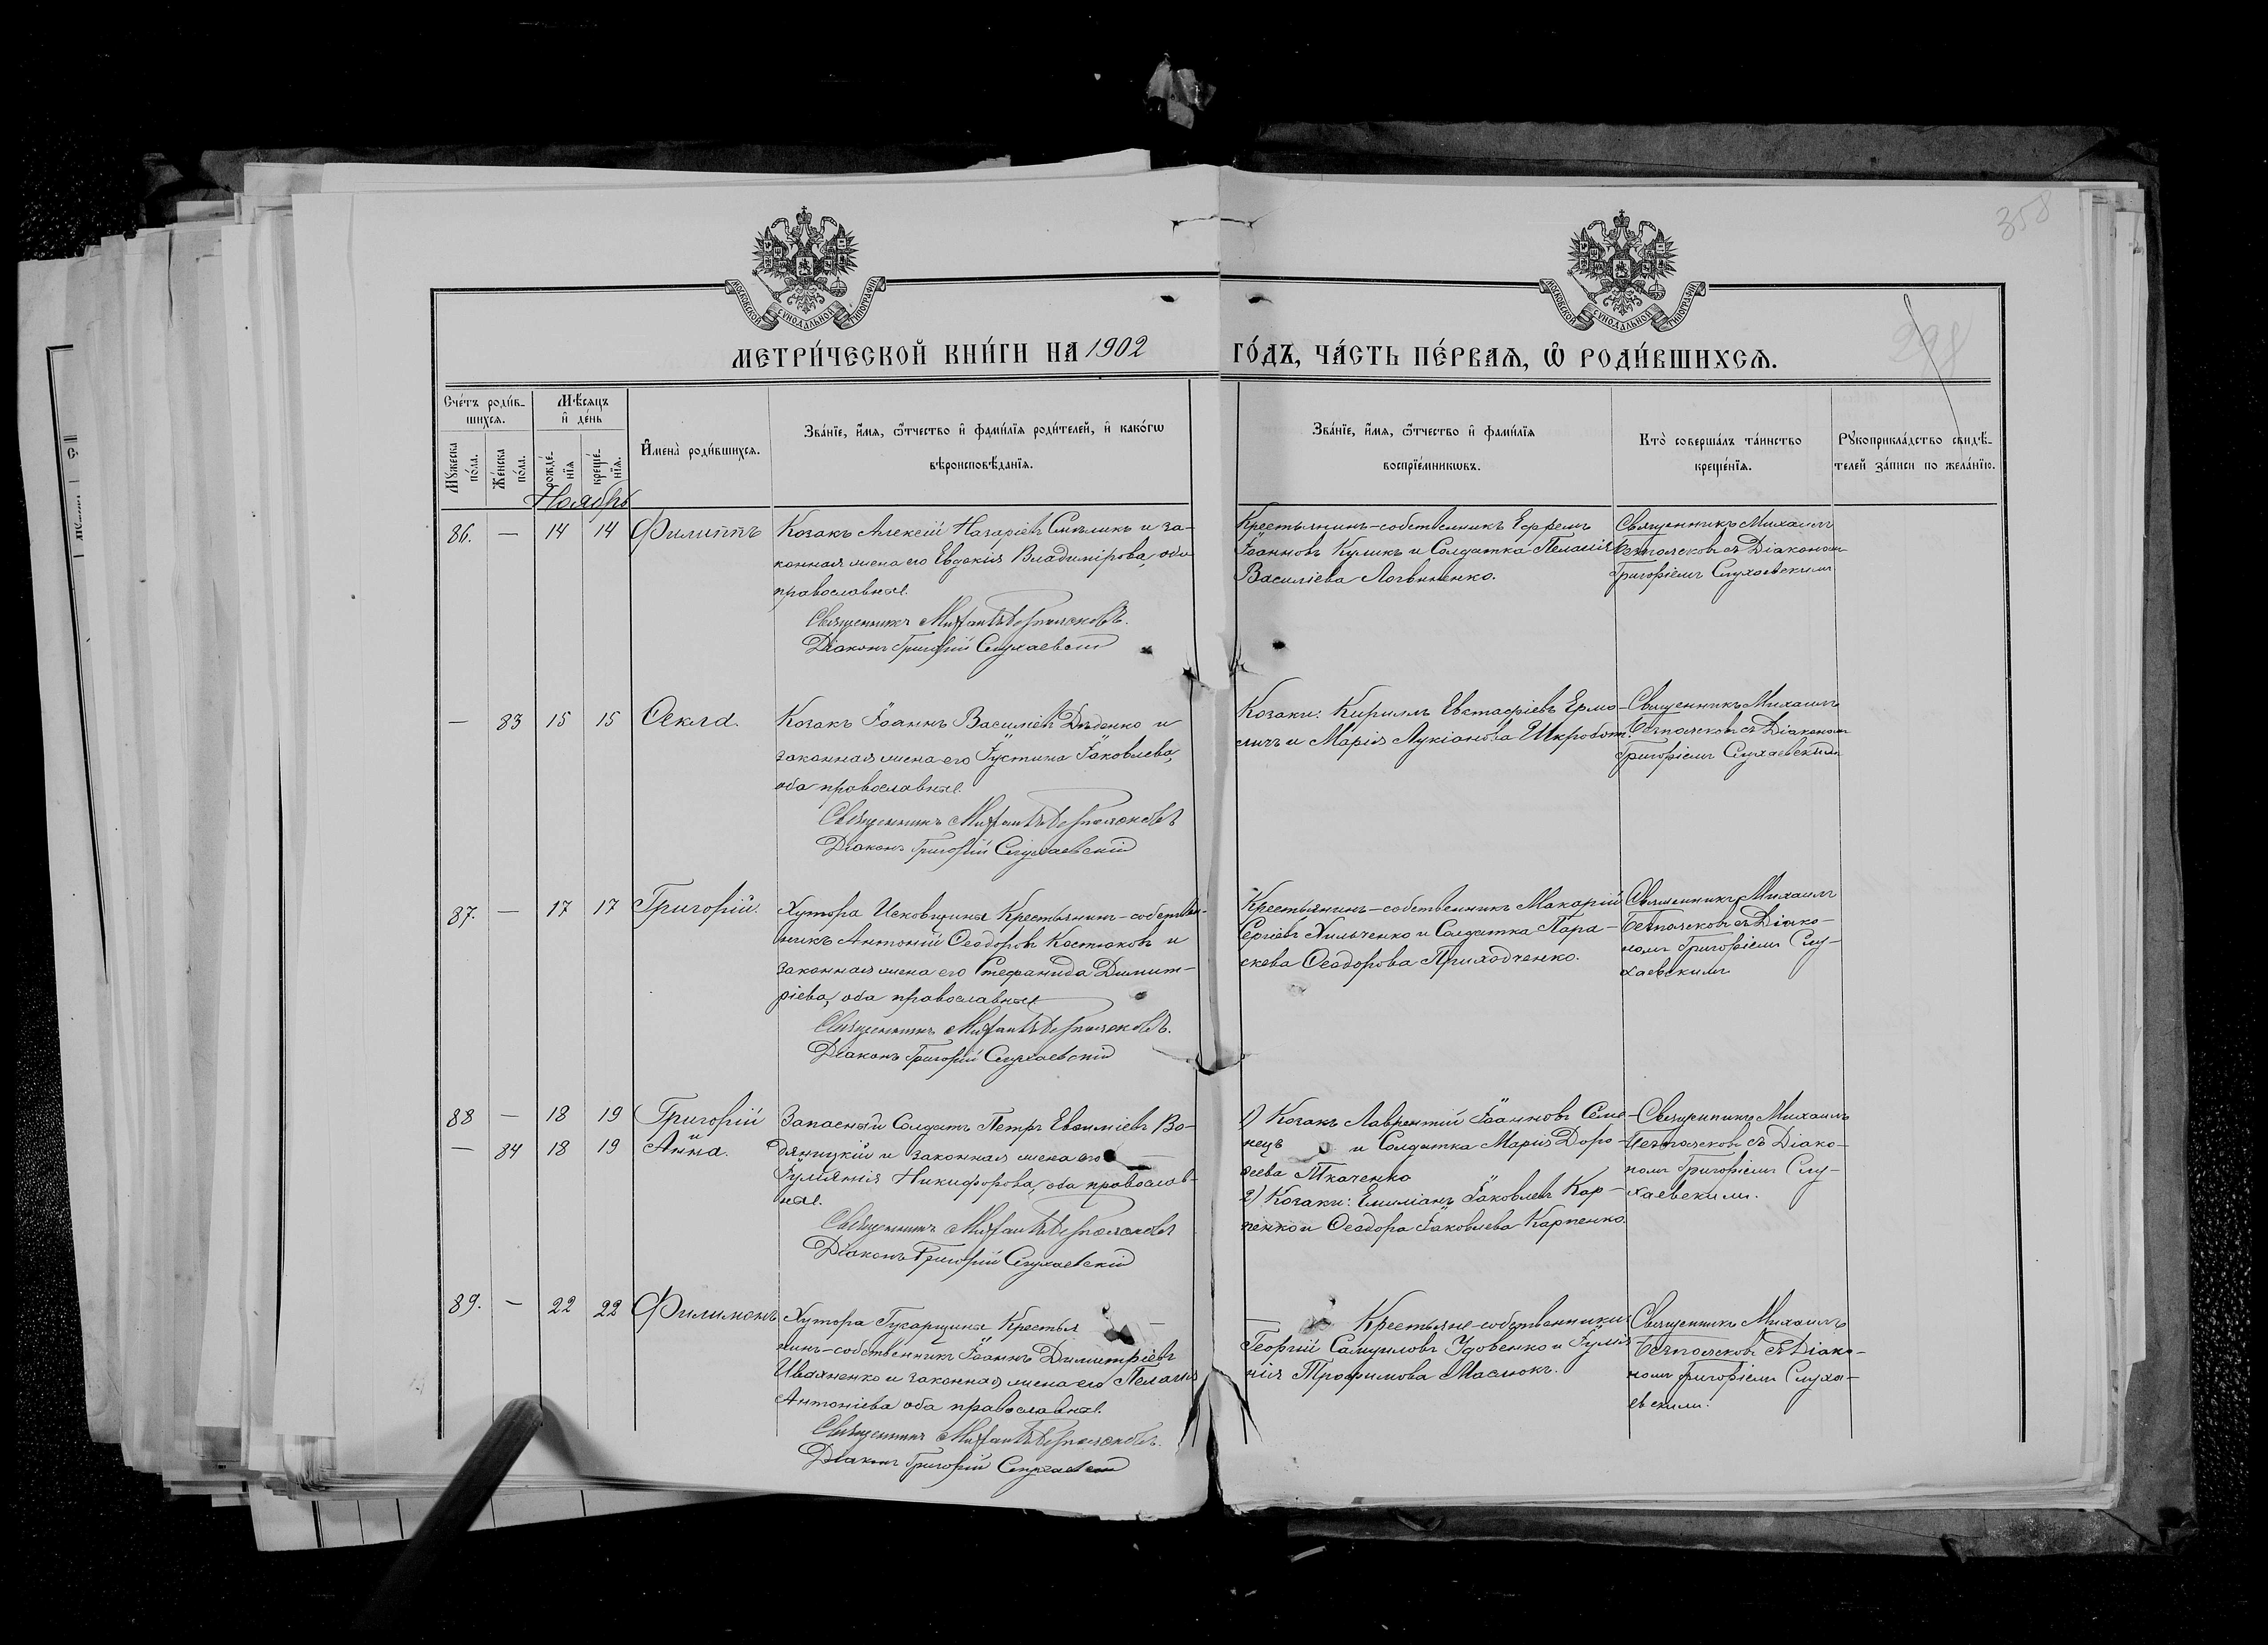 358
298
МОСКОВСКОЙ СѴНОДАЛЬНОЙ ТИПОГРАФІИ
МОСКОВСКОЙ СѴНОДАЛЬНОЙ ТИПОГРАФІИ
МЕТРИ́ЧЕСКОЙ КНИ́ГИ НА 1902 ГО́ДЪ, ЧА́СТЬ ПЕ́РВАѦ, Ѡ҆ РОДИ́ВШИХСѦ.
Сче́тъ роди́в-
шихсѧ.
Мѣ́сѧцъ
и҆ де́нь
Мꙋ́жеска
по́ла.
Же́нска
по́ла.
рожде́-
нїѧ
креще́-
нїѧ.
И҆мена̀ роди́вшихсѧ.
Зва́нїе, и҆́мѧ, ѻ҆́тчество и҆ фами́лїѧ роди́телей, и҆ како́гѡ
вѣроисповѣ́данїѧ.
Зва́нїе, и҆́мѧ, ѻ҆́тчество и҆ фами́лїѧ
воспрїе́мникѡвъ.
Кто̀ соверша́лъ та́инство
креще́нїѧ.
Рꙋкоприкла́дство свидѣ́-
телей за́писи по жела́нїю.
Ноябрь
86. — 14 14 Филиппъ
Козакъ Алексій Назаріевъ Смѣликъ и за-
конная жена его Евдокія Владимірова, оба
православные.
Священникъ Михаилъ
Діаконъ Григорій Слухаевскій
Крестьянинъ-собственникъ Ефремъ
Іоанновъ Куликъ и Солдатка Пелагія
Василіева Логвиненко.
Священникъ Михаилъ
съ Діакономъ
Григоріемъ Слухаевскимъ
— 83 15 15 Ѳекла.
Козакъ Іоаннъ Василіевъ Дѣденко и
законная жена его Іустина Іаковлева,
оба православные.
Священникъ Михаилъ
Діаконъ Григорій Слухаевскій
Козаки: Кириллъ Евстафіевъ Ермо-
личъ и Марія Лукіанова Шкроботъ.
Священникъ Михаилъ
съ Діакономъ
Григоріемъ Слухаевскимъ
87. — 17 17 Григорій.
Хутора Исковщины Крестьянинъ-собствен-
никъ Антоній Ѳеодоровъ Костюковъ и
законная жена его Стефанида Димит-
ріева, оба православные
Священникъ Михаилъ
Діаконъ Григорій Слухаевскій
Крестьянинъ-собственникъ Макарій
Сергіевъ Хильченко и Солдатка Пара-
скева Ѳеодорова Приходченко.
Священникъ Михаилъ
съ Діако-
номъ Григоріемъ Слу-
хаевскимъ
88 — 18 19 Григорій
и
— 84 18 19 Анна.
Запасный Солдатъ Петръ Евѳиміевъ Во-
дяницкій и законная жена его
Іуліанія Никифорова, оба православ-
ные.
Священникъ Михаилъ
Діаконъ Григорій Слухаевскій
1) Козакъ Лаврентій Іоанновъ Семе-
нецъ и Солдатка Марія Доро-
ѳеева Ткаченко
2) Козаки: Емиліанъ Іаковлевъ Кар-
пенко и Ѳеодора Іаковлева Карпенко.
Священникъ Михаилъ
съ Діако-
номъ Григоріемъ Слу-
хаевскимъ.
89. — 22 22 Филимонъ
Хутора Гусарщины Крестья
нинъ-собственникъ Іоаннъ Димитріевъ
Иваненко и законная жена его Пелагія
Антоніева оба православные.
Священникъ Михаилъ
Діаконъ Григорій Слухаевскій
Крестьяне-собственники
Георгій Самуиловъ Удовенко и Іуліа
нія Трофимова Маслюкъ.
Священникъ Михаилъ
съ Діако-
номъ Григоріемъ Слуха-
евскимъ.